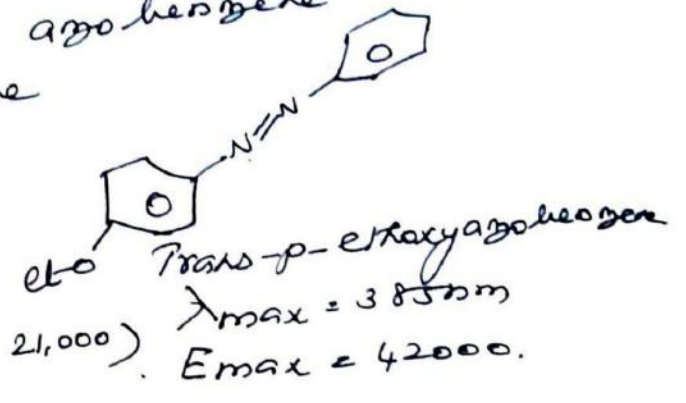 azo benzene
e
N=N
et-O
Trans-p-ethoxyazobenzene
λmax = 385nm
21,000). Emax = 42000.